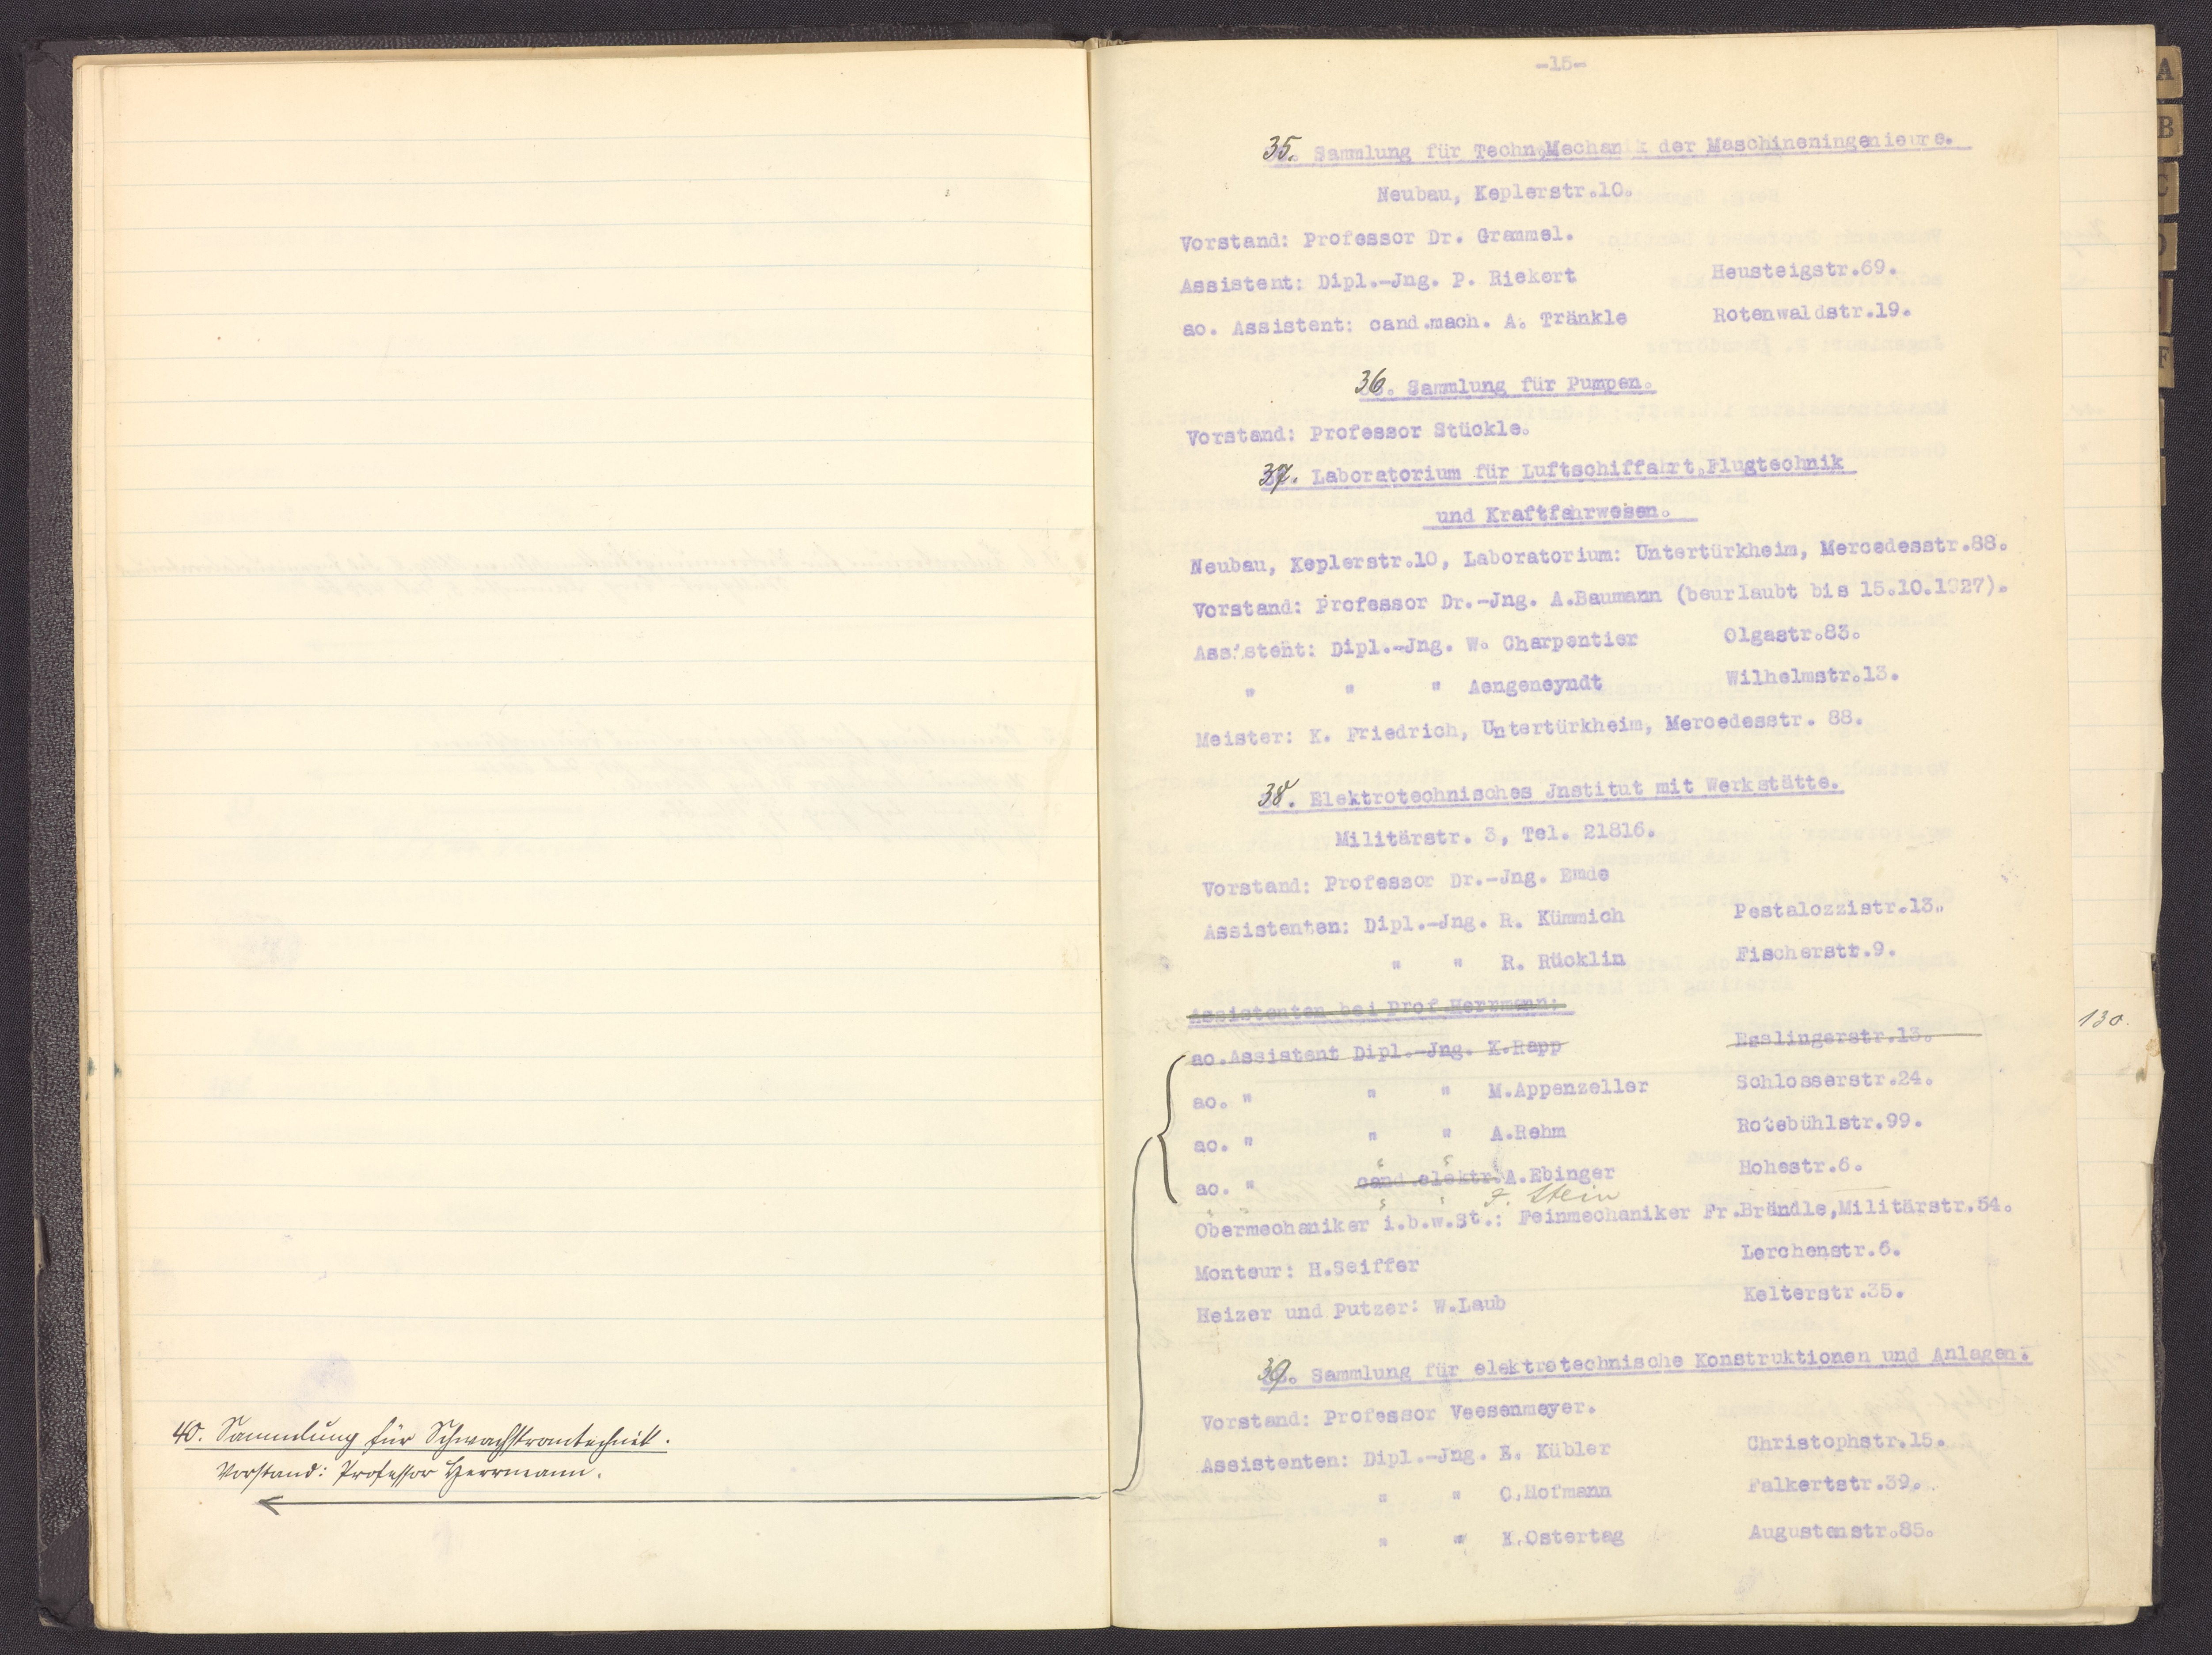 40. Sammlung für Schwachstromtechnik.
Vorstand: Professor Herrmann.
-15-
35. Sammlung für Techn.Mechanik der Maschineningenieure.
Neubau, Keplerstr.10.
Vorstand: Professor Dr. Grammel.
Assistent: Dipl.-Jng. P. Riekert Heusteigstr.69.
ao. Assistent: cand.mach. A. Tränkle Rotenwaldstr.19.
36. Sammlung für Pumpen.
Vorstand: Professor Stückle.
37. Laboratorium für Luftschiffahrt,Flugtechnik
und Kraftfahrwesen.
Neubau, Keplerstr.10, Laboratorium: Untertürkheim, Mercedesstr.88.
Vorstand: Professor Dr.-Jng. A.Baumann (beurlaubt bis 15.10.1927).
Assistent: Dipl.-Jng. W. Charpentier Olgastr.83.
" " " Aengeneyndt Wilhelmstr.13.
Meister: K. Friedrich, Untertürkheim, Mercedesstr. 88.
38. Elektrotechnisches Jnstitut mit Werkstätte.
Militärstr. 3, Tel. 21816.
Vorstand: Professor Dr.-Jng. Emde
Assistenten: Dipl.-Jng. R. Kümmich Pestalozzistr.13.
" " R. Rücklin Fischerstr.9.
Assistenten bei Prof.Herrmann:
ao.Assistent Dipl.-Jng. K.Rapp Esslingerstr.13.
130.
ao. " " " M.Appenzeller Schlosserstr.24.
ao. " " " A.Rehm Rotebühlstr.99.
ao. " cand.elektr.A.Ebinger Hohestr.6.
" " " " F. Stein
Obermechaniker i.b.w.St.: Feinmechaniker Fr.Brändle,Militärstr.54.
Monteur: H.Seiffer Lerchenstr.6.
Heizer und Putzer: W.Laub Kelterstr.35.
39. Sammlung für elektrotechnische Konstruktionen und Anlagen.
Vorstand: Professor Veesenmeyer.
Assistenten: Dipl.-Jng. E. Kübler Christophstr.15.
" " O.Hofmann Falkertstr.39.
" " K.Ostertag Augustenstr.85.
A
B
C
D
F